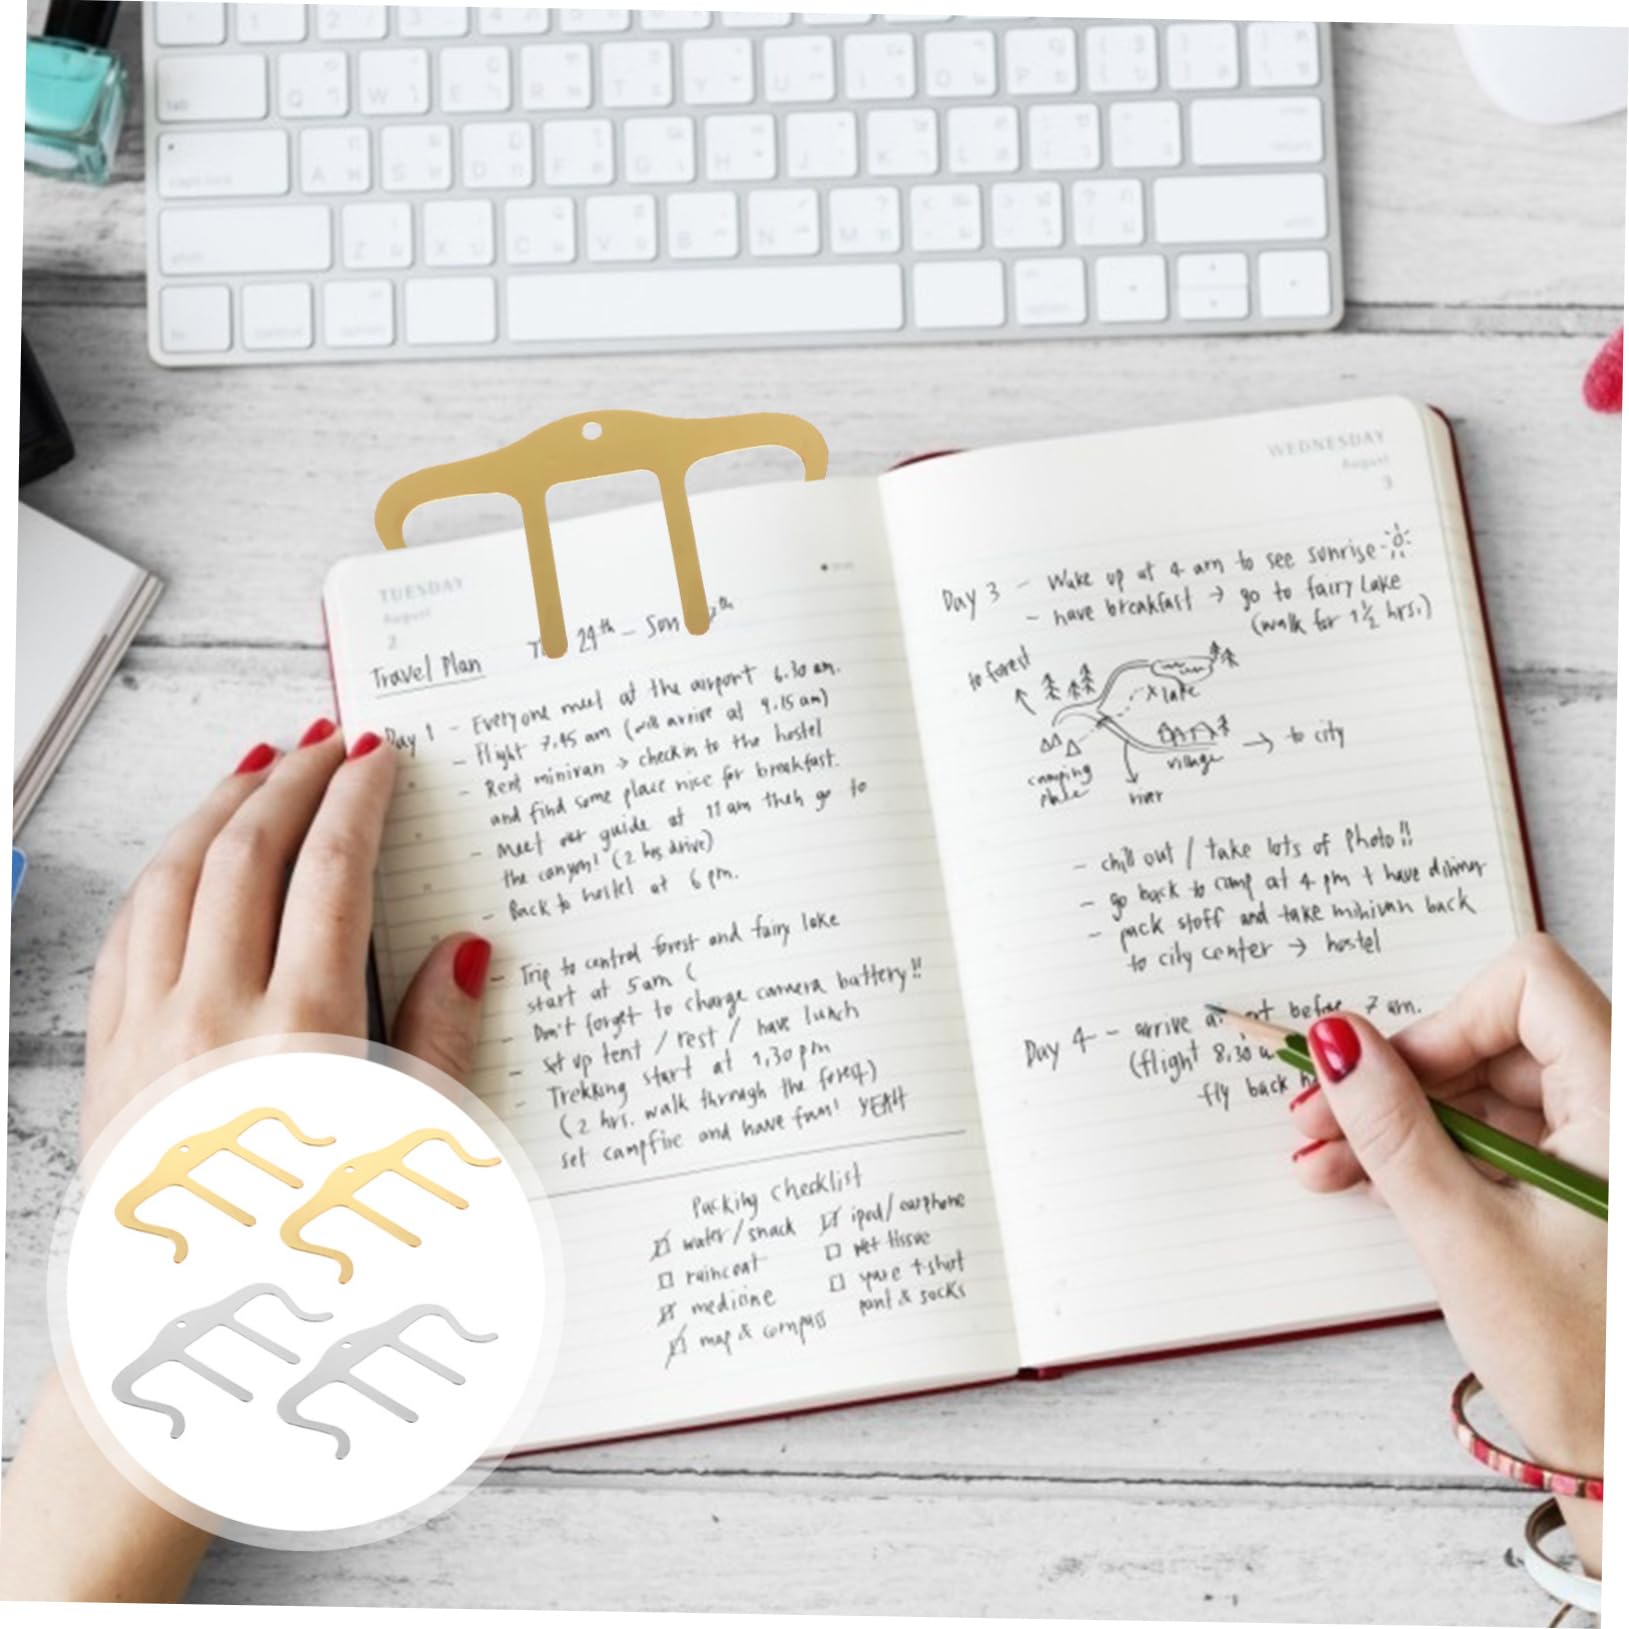 tab
Q W E R T Y U I O P
caps lock
A S D F G H J K L
shift
Z X C V B N M
TUESDAY
August
2
29th - Sun
Travel Plan
Day 1 - Everyone meet at the airport 6.30 am.
- Flight 7.45 am (will arrive at 9.15 am)
- Rent minivan → check in to the hostel
and find some place nice for breakfast.
- Meet our guide at 11 am then go to
the canyon! (2 hrs drive)
- Back to hostel at 6 pm.
- Trip to central forest and fairy lake
start at 5am (
- Don't forget to charge camera battery!!
- set up tent / rest / have lunch
- Trekking start at 1,30 pm
(2 hrs. walk through the forest)
set campfire and have fun! YEAH
Packing checklist
water/snack
raincoat
medicine
map & compass
ipod/earphone
wet tissue
spare t-shirt
pant & socks
WEDNESDAY
August
3
Day 3 - Wake up at 4 am to see sunrise
- have breakfast → go to fairy Lake
(walk for 1½ hrs.)
to forest
x lake
camping
place
village
river
→ to city
- chill out / take lots of Photo!!
- go back to camp at 4 pm + have dinner
- pack stuff and take minivan back
to city center → hostel
Day 4 - arrive before 7 am.
(flight 8.30
fly back